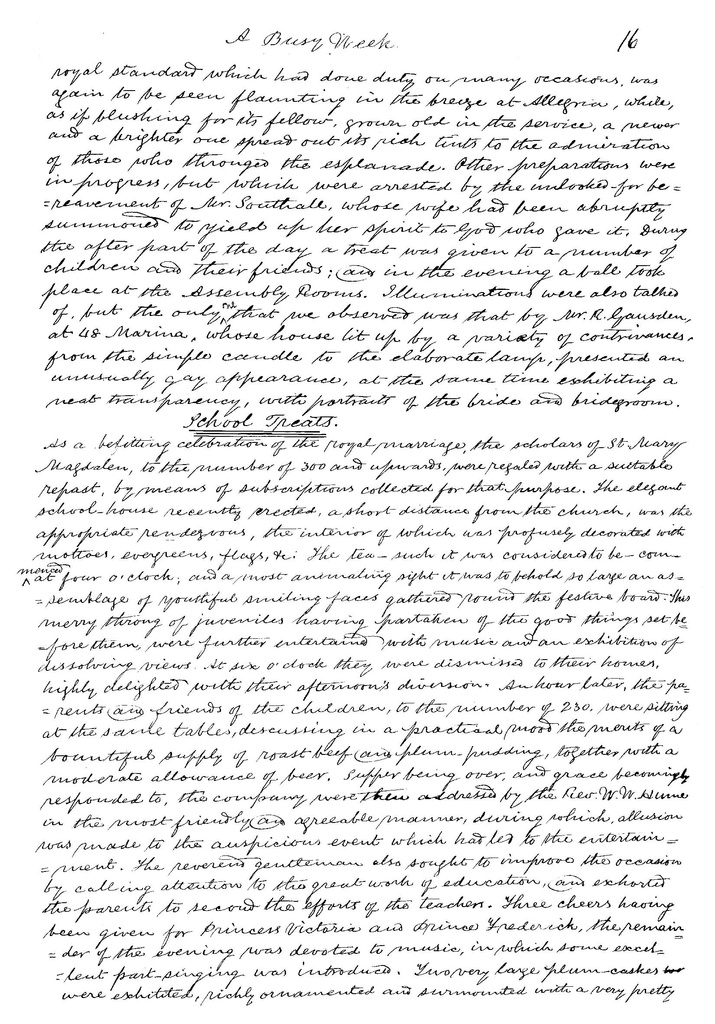 A Busy Week. 16
royal standard which had done duty on many occasions, was
again to be seen flaunting in the breeze at Allegria, while,
as if blushing for its fellow, grown old in the service, a newer
and a brighter one spread out its rich tints to the admiration
of those who thronged the esplanade. Other preparations were
in progress, but which were arrested by the unlooked-for be=
=reavement of Mr. Southall, whose wife had been abruptly
summoned to yield up her spirit to God who gave it. During
the after part of the day a treat was given to a number of
children and their friends; and in the evening a ball took
place at the Assembly Rooms. Illuminations were also talked
of, but the only one that we observed was that by Mr. R. Gausden,
at 48 Marina, whose house lit up by a variety of contrivances,
from the simple candle to the elaborate lamp, presented an
unusually gay appearance, at the same time exhibiting a
neat transparency, with portraits of the bride and bridegroom.
School Treats.
As a befitting celebration of the royal marriage, the scholars of St Mary
Magdalen, to the number of 300 and upwards, were regaled with a suitable
repast, by means of subscriptions collected for that purpose. The elegant
school-house recently erected, a short distance from the church, was the
appropriate rendezvous, the interior of which was profusely decorated with
mottoes, evergreens, flags, &c. The tea – such it was considered to be – com–
menced at four o'clock; and a most animating sight it was to behold so large an as=
=semblage of youthful smiling faces gathered round the festive board. This
merry throng of juveniles having partaken of the good things set be
fore them, were further entertained with music and an exhibition of
dissolving views. At six o'clock they were dismissed to their homes,
highly delighted with their afternoon's diversion. An hour later, the pa=
=rents and friends of the children, to the number of 230, were sitting
at the same tables, descussing in a practical mood the merits of a
bountiful supply of roast beef and plum-pudding, together with a
moderate allowance of beer. Supper being over, and grace becomingly
responded to, the company were then addressed by the Rev. W. W. Hume
in the most friendly and agreeable manner, during which, allusion
was made to the auspicious event which had led to the entertain=
=ment. The reverend gentleman also sought to improve the occasion
by calling attention to the great work of education, and exhorted
the parents to second the efforts of the teachers. Three cheers having
been given for Princess Victoria and Prince Frederick, the remain=
=der of the evening was devoted to music, in which some excel=
=lent part-singing was introduced. Two very large plum-caskes
were exhibited, richly ornamented and surmounted with a very pretty